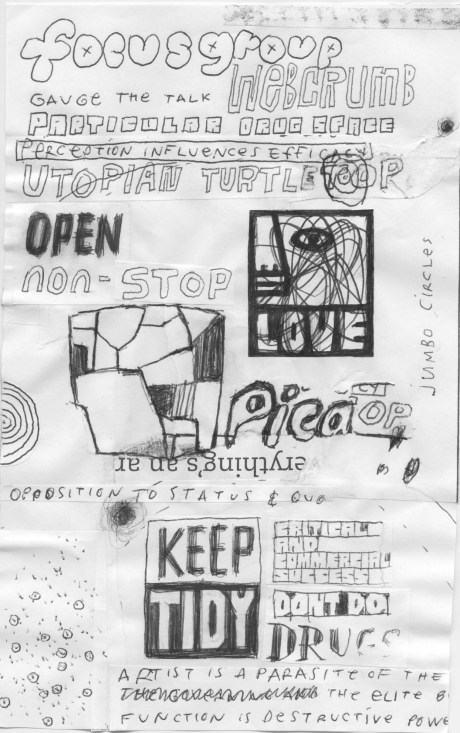 focusgroup
WEBCRUMB
GAUGE THE TALK
PARTICULAR DRUG SPACE
PERCEPTION INFLUENCES EFFICACY
UTOPIAN TURTLETOP
OPEN
non-STOP
LIKE
LOVE
JUMBO CIRCLES
Pica
TOP
erything's an ar
OPPOSITION TO STATUS & QUO
KEEP
TIDY
CRITICAL
AND
COMMERCIAL
SUCCESS
DONT DO
DRUGS
ARTIST IS A PARASITE OF THE
THE ELITE B
FUNCTION IS DESTRUCTIVE POWE